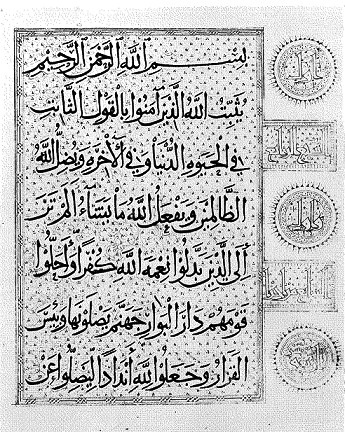 بِسْمِ اللَّهِ الرَّحْمَٰنِ الرَّحِيمِ
يُثَبِّتُ اللَّهُ الَّذِينَ آمَنُوا بِالْقَوْلِ الثَّابِتِ
فِي الْحَيَوةِ الدُّنْيَا وَفِي الْآخِرَةِ وَيُضِلُّ اللَّهُ
الظَّالِمِينَ وَيَفْعَلُ اللَّهُ مَا يَشَاءُ أَلَمْ تَرَ
إِلَى الَّذِينَ بَدَّلُوا نِعْمَةَ اللَّهِ كُفْرًا وَأَحَلُّوا
قَوْمَهُمْ دَارَ الْبَوَارِ جَهَنَّمَ يَصْلَوْنَهَا وَبِئْسَ
الْقَرَارُ وَجَعَلُوا لِلَّهِ أَنْدَادًا لِيُضِلُّوا عَنْ